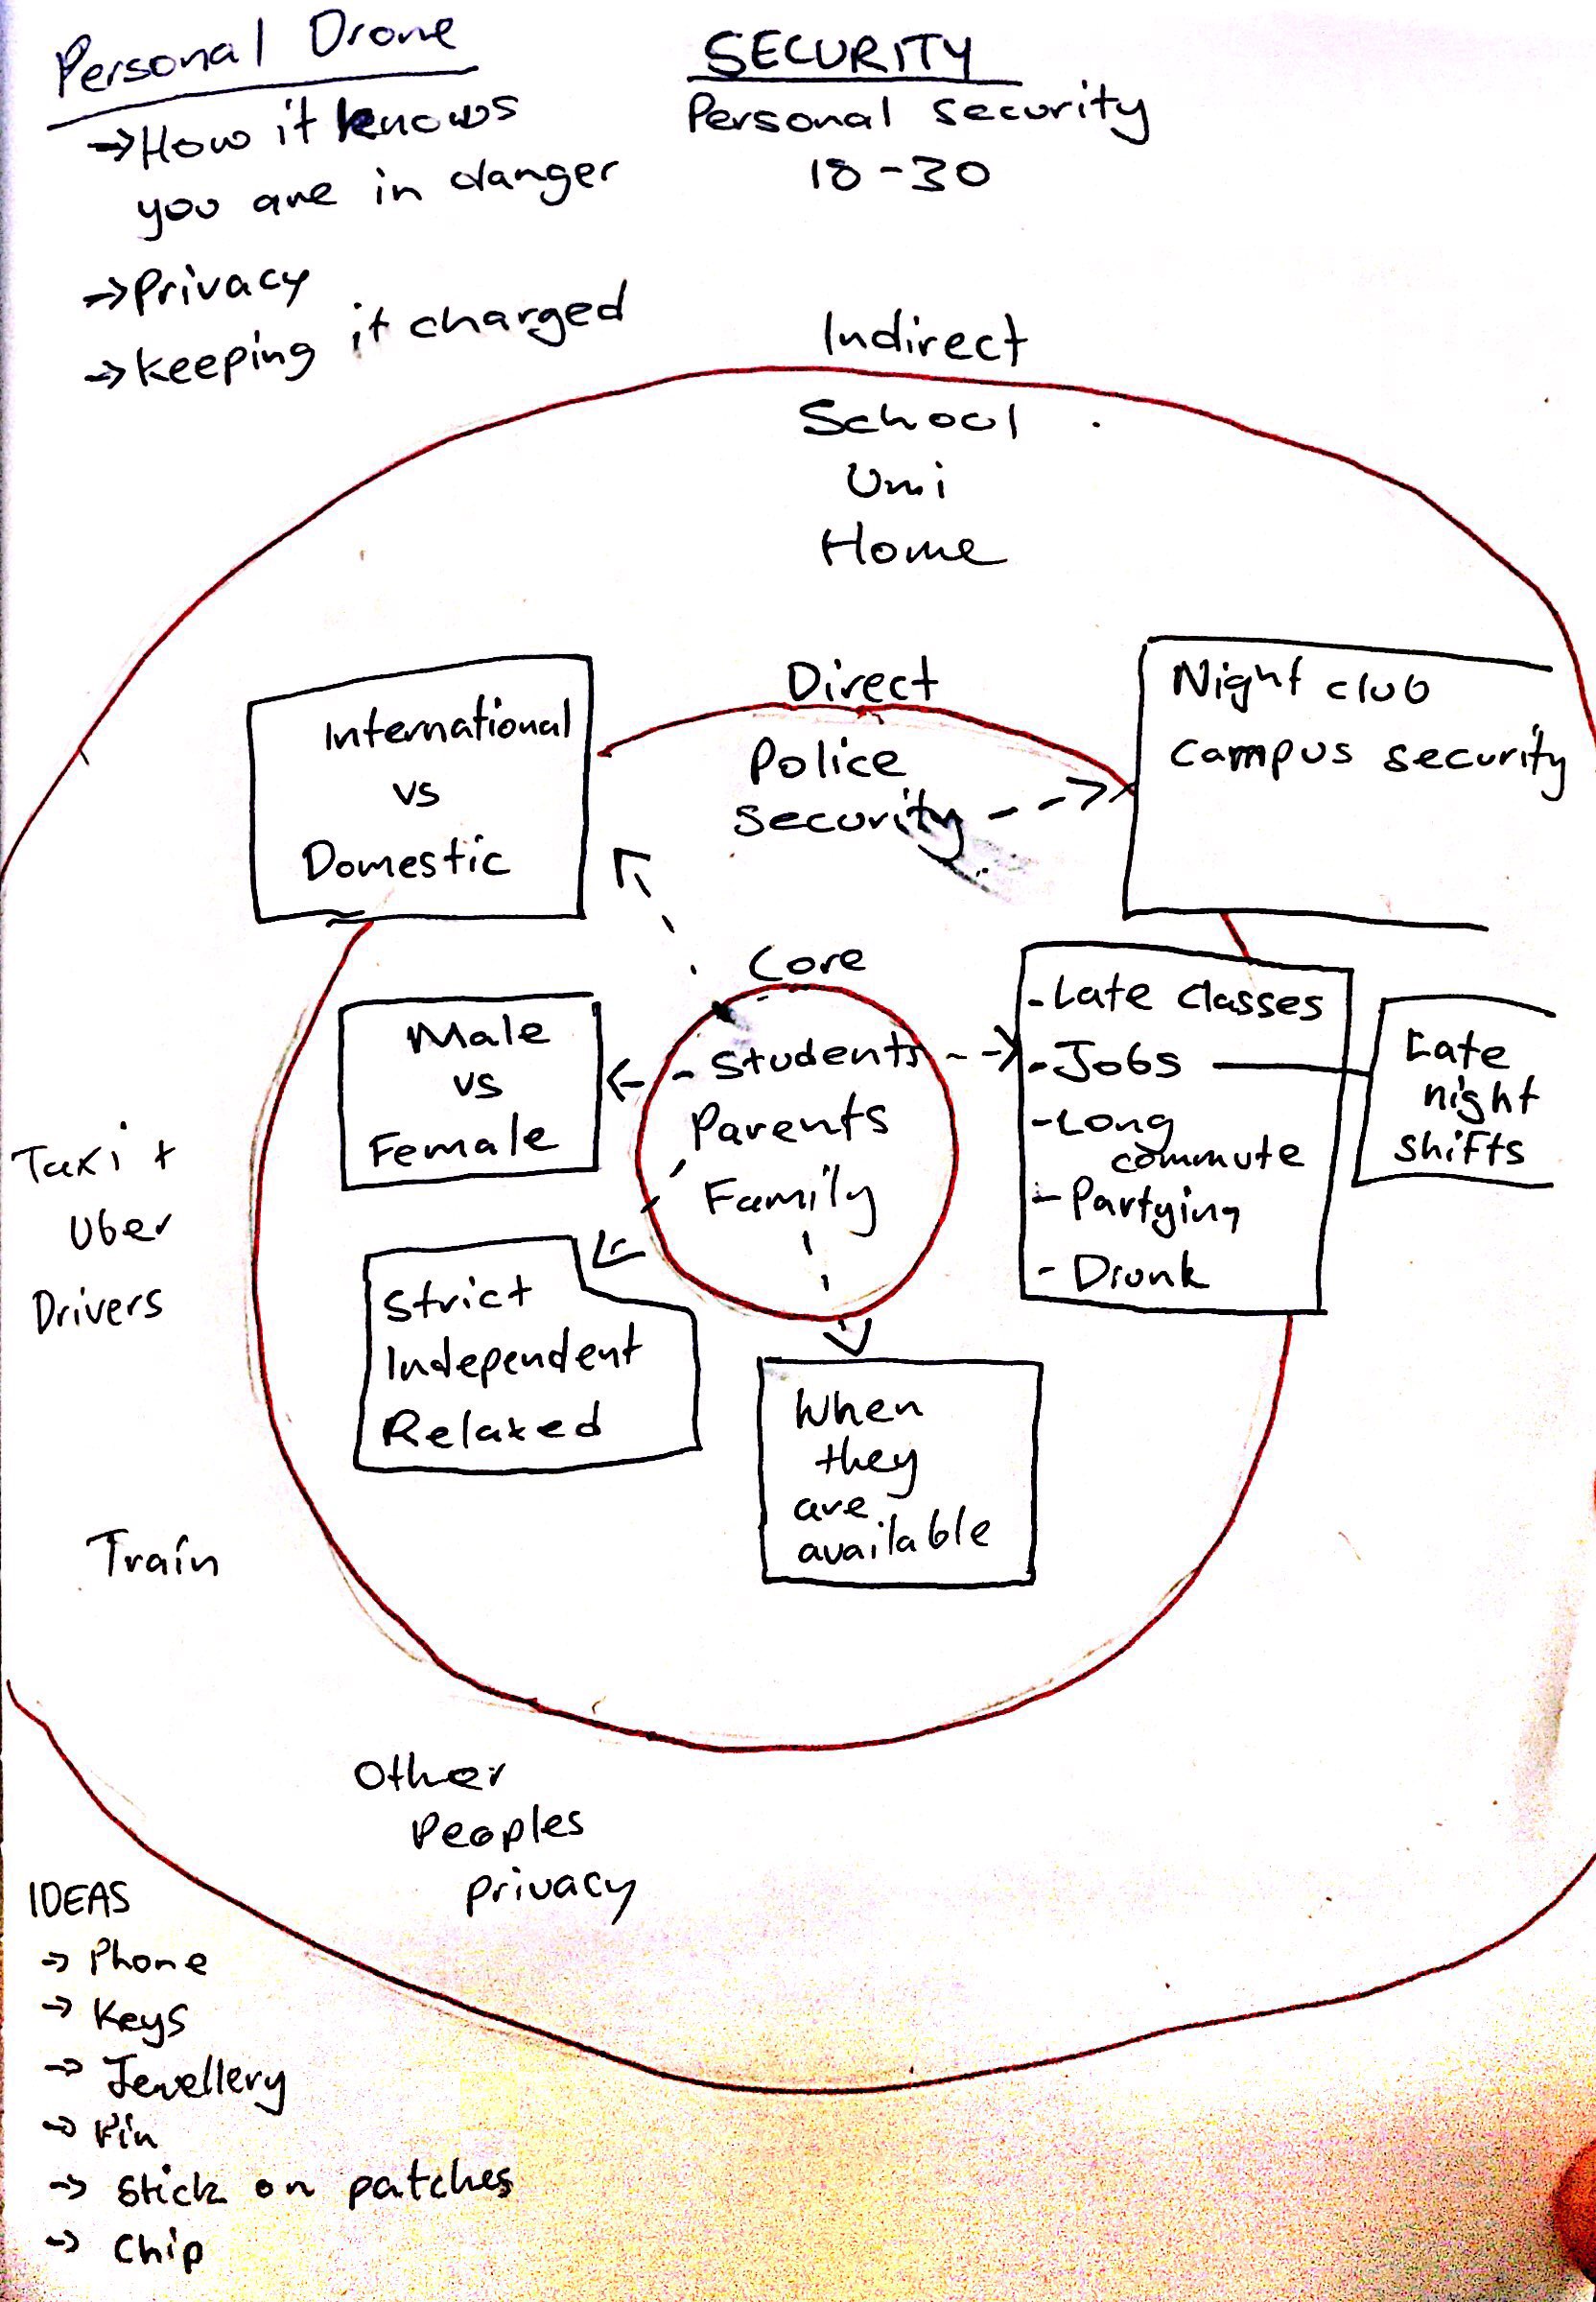 Personal Drone
→ How it knows
you are in danger
→ Privacy
→ keeping it charged
SECURITY
Personal security
18-30
Indirect
School
Uni
Home
Direct
Police
security
International
vs
Domestic
Night club
campus security
Core
Students
Parents
Family
Male
vs
Female
- Late classes
- Jobs
- Long
commute
- Partying
- Drunk
Late
night
shifts
Strict
Independent
Relaxed
When
they
are
available
Taxi +
Uber
Drivers
Train
Other
Peoples
privacy
IDEAS
→ Phone
→ Keys
→ Jewellery
→ Pin
→ Stick on patches
→ Chip